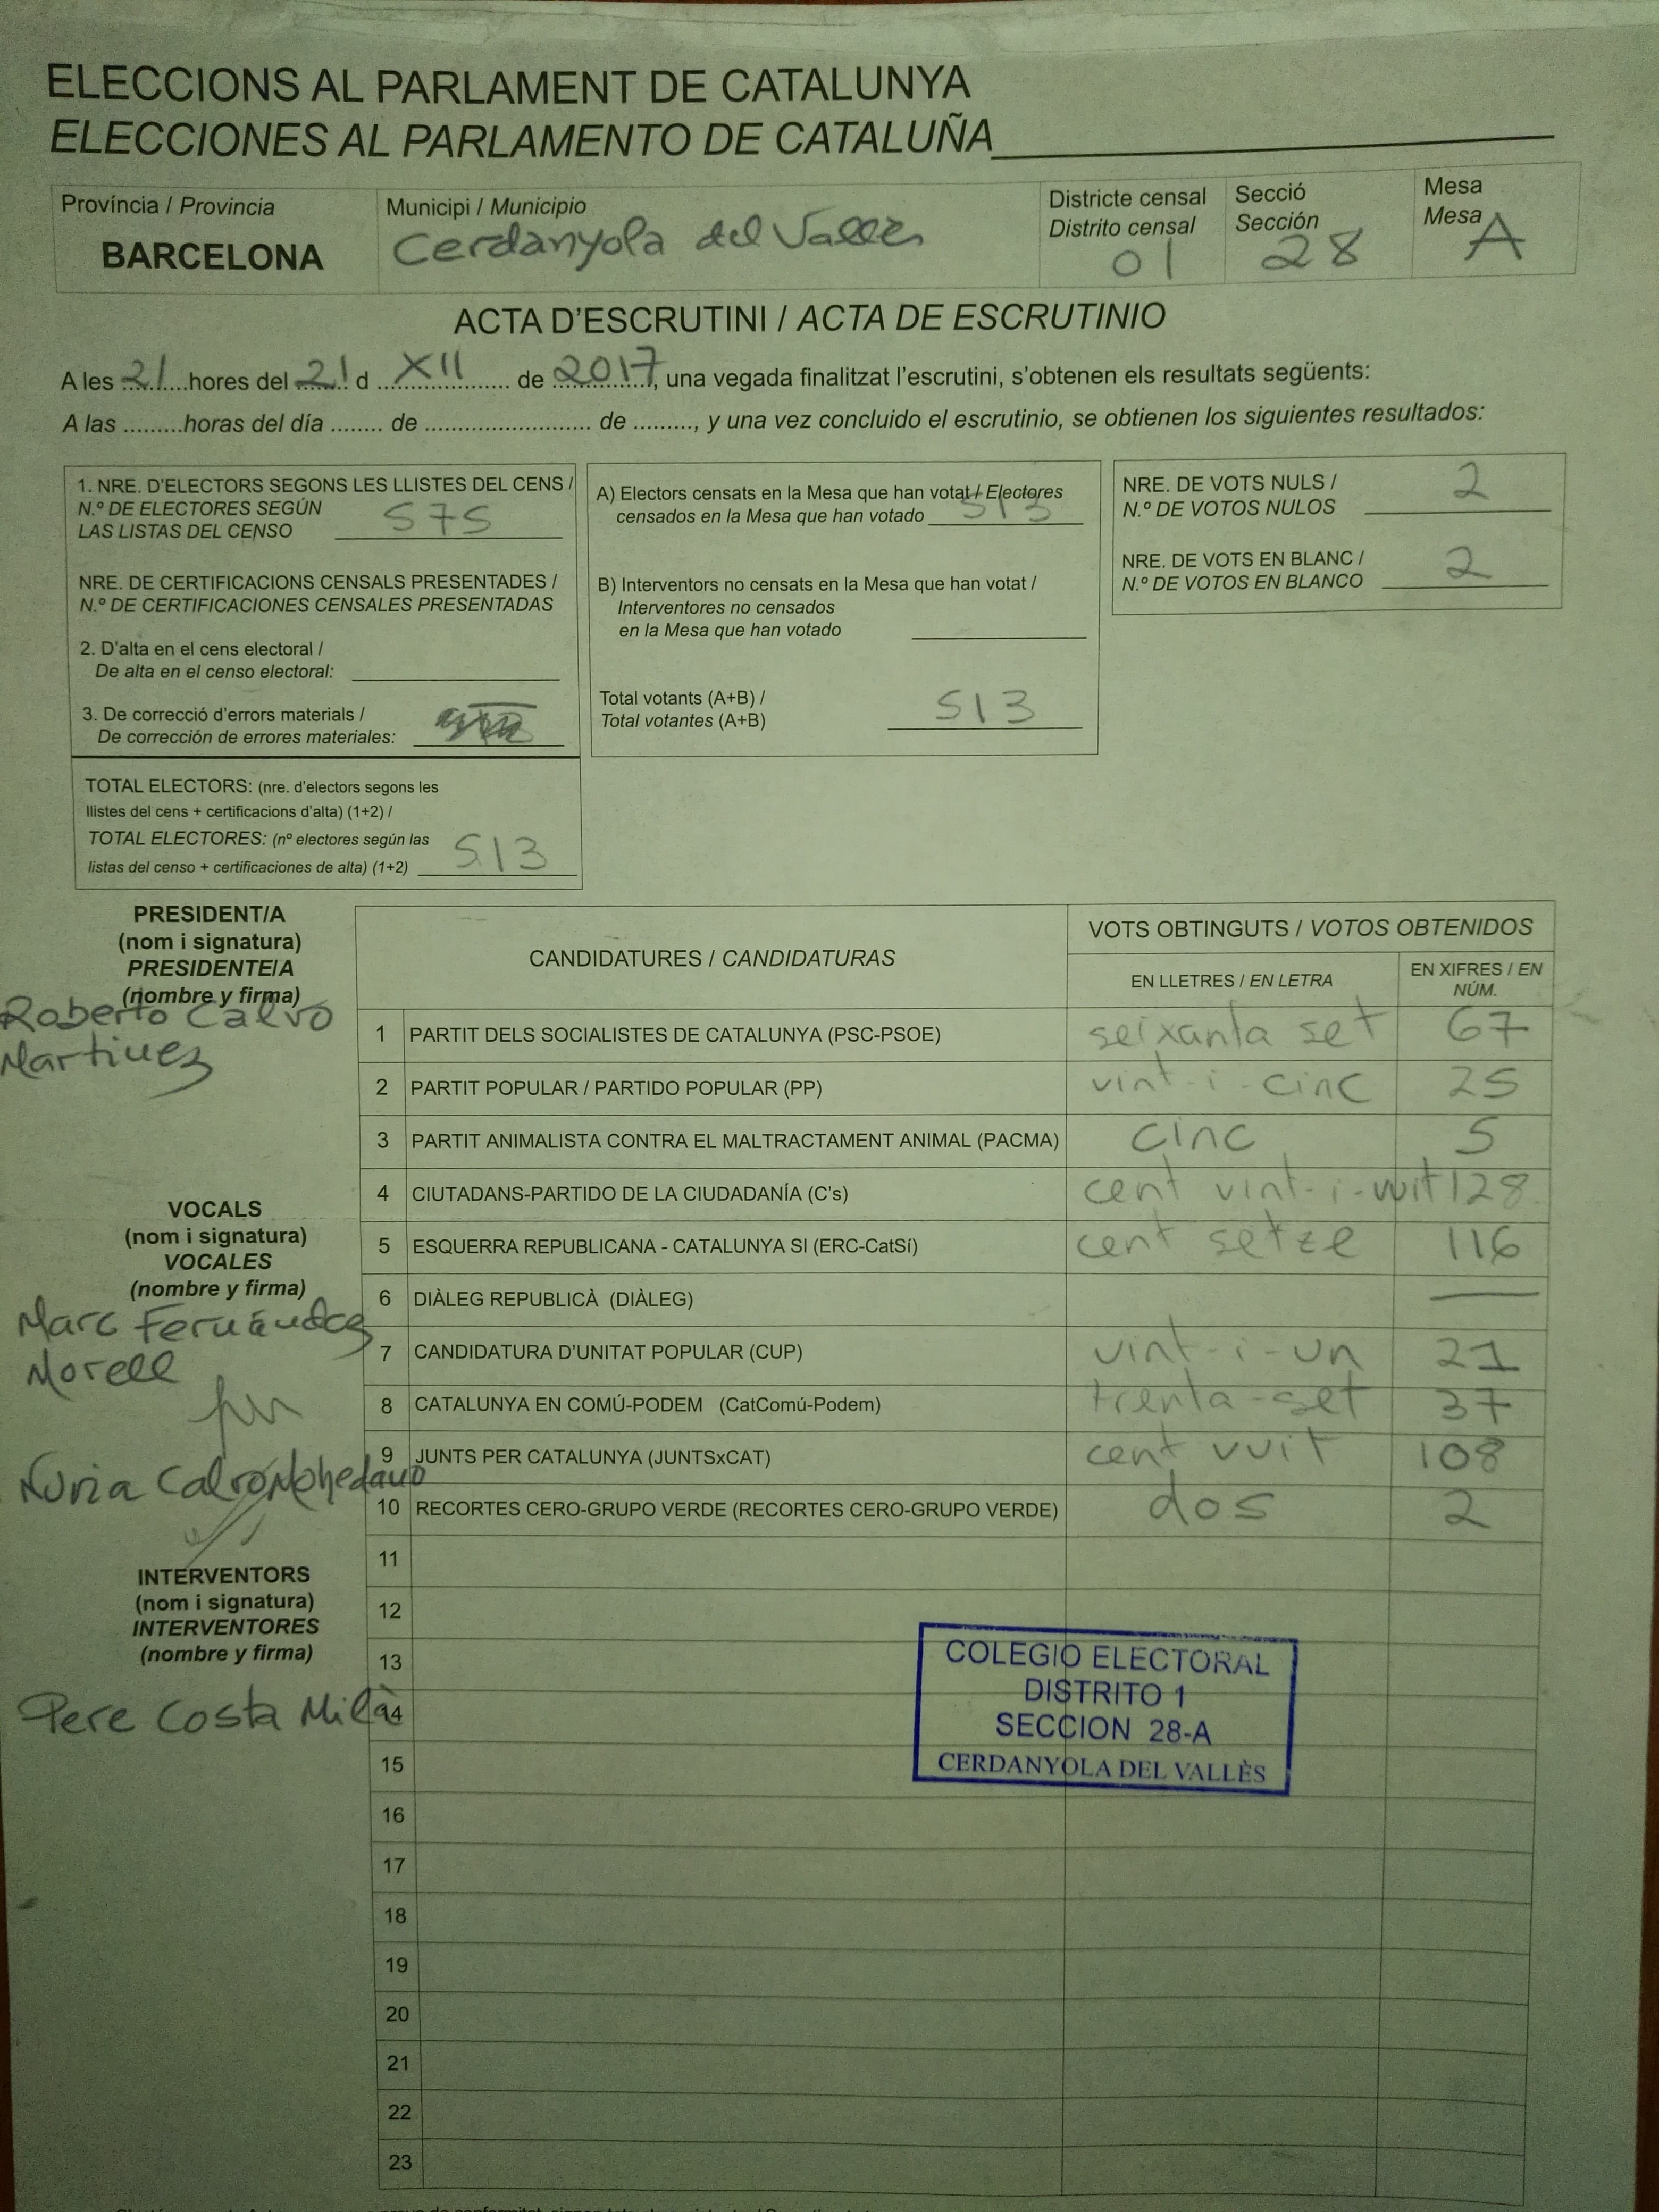 ELECCIONS AL PARLAMENT DE CATALUNYA
ELECCIONES AL PARLAMENTO DE CATALUÑA
Província / Provincia
BARCELONA
Municipi / Municipio
Cerdanyola del Vallès
Districte censal
Distrito censal
01
Secció
Sección
28
Mesa
Mesa
A
ACTA D'ESCRUTINI / ACTA DE ESCRUTINIO
A les 21 hores del 21 d XII de 2017, una vegada finalitzat l'escrutini, s'obtenen els resultats següents:
A las .........horas del día ........ de ......................... de ........., y una vez concluido el escrutinio, se obtienen los siguientes resultados:
1. NRE. D'ELECTORS SEGONS LES LLISTES DEL CENS /
N.º DE ELECTORES SEGÚN
LAS LISTAS DEL CENSO 575
NRE. DE CERTIFICACIONS CENSALS PRESENTADES /
N.º DE CERTIFICACIONES CENSALES PRESENTADAS
2. D'alta en el cens electoral /
De alta en el censo electoral:
3. De correcció d'errors materials /
De corrección de errores materiales:
TOTAL ELECTORS: (nre. d'electors segons les
llistes del cens + certificacions d'alta) (1+2) /
TOTAL ELECTORES: (nº electores según las
listas del censo + certificaciones de alta) (1+2) 513
A) Electors censats en la Mesa que han votat / Electores
censados en la Mesa que han votado 513
B) Interventors no censats en la Mesa que han votat /
Interventores no censados
en la Mesa que han votado
Total votants (A+B) /
Total votantes (A+B) 513
NRE. DE VOTS NULS /
N.º DE VOTOS NULOS 2
NRE. DE VOTS EN BLANC /
N.º DE VOTOS EN BLANCO 2
PRESIDENT/A
(nom i signatura)
PRESIDENTE/A
(nombre y firma)
Roberto Calvo
Martinez
VOCALS
(nom i signatura)
VOCALES
(nombre y firma)
Marc Fernández
Morell
Nuria Calvo Mohedano
INTERVENTORS
(nom i signatura)
INTERVENTORES
(nombre y firma)
Pere Costa Milà
CANDIDATURES / CANDIDATURAS
VOTS OBTINGUTS / VOTOS OBTENIDOS
EN LLETRES / EN LETRA
EN XIFRES / EN
NÚM.
1 PARTIT DELS SOCIALISTES DE CATALUNYA (PSC-PSOE) seixanta set 67
2 PARTIT POPULAR / PARTIDO POPULAR (PP) vint-i-cinc 25
3 PARTIT ANIMALISTA CONTRA EL MALTRACTAMENT ANIMAL (PACMA) cinc 5
4 CIUTADANS-PARTIDO DE LA CIUDADANÍA (C's) cent vint-i-vuit 128
5 ESQUERRA REPUBLICANA - CATALUNYA SI (ERC-CatSí) cent setze 116
6 DIÀLEG REPUBLICÀ (DIÀLEG) —
7 CANDIDATURA D'UNITAT POPULAR (CUP) vint-i-un 21
8 CATALUNYA EN COMÚ-PODEM (CatComú-Podem) trenta-set 37
9 JUNTS PER CATALUNYA (JUNTSxCAT) cent vuit 108
10 RECORTES CERO-GRUPO VERDE (RECORTES CERO-GRUPO VERDE) dos 2
11
12
13
14
15
16
17
18
19
20
21
22
23
COLEGIO ELECTORAL
DISTRITO 1
SECCION 28-A
CERDANYOLA DEL VALLÈS